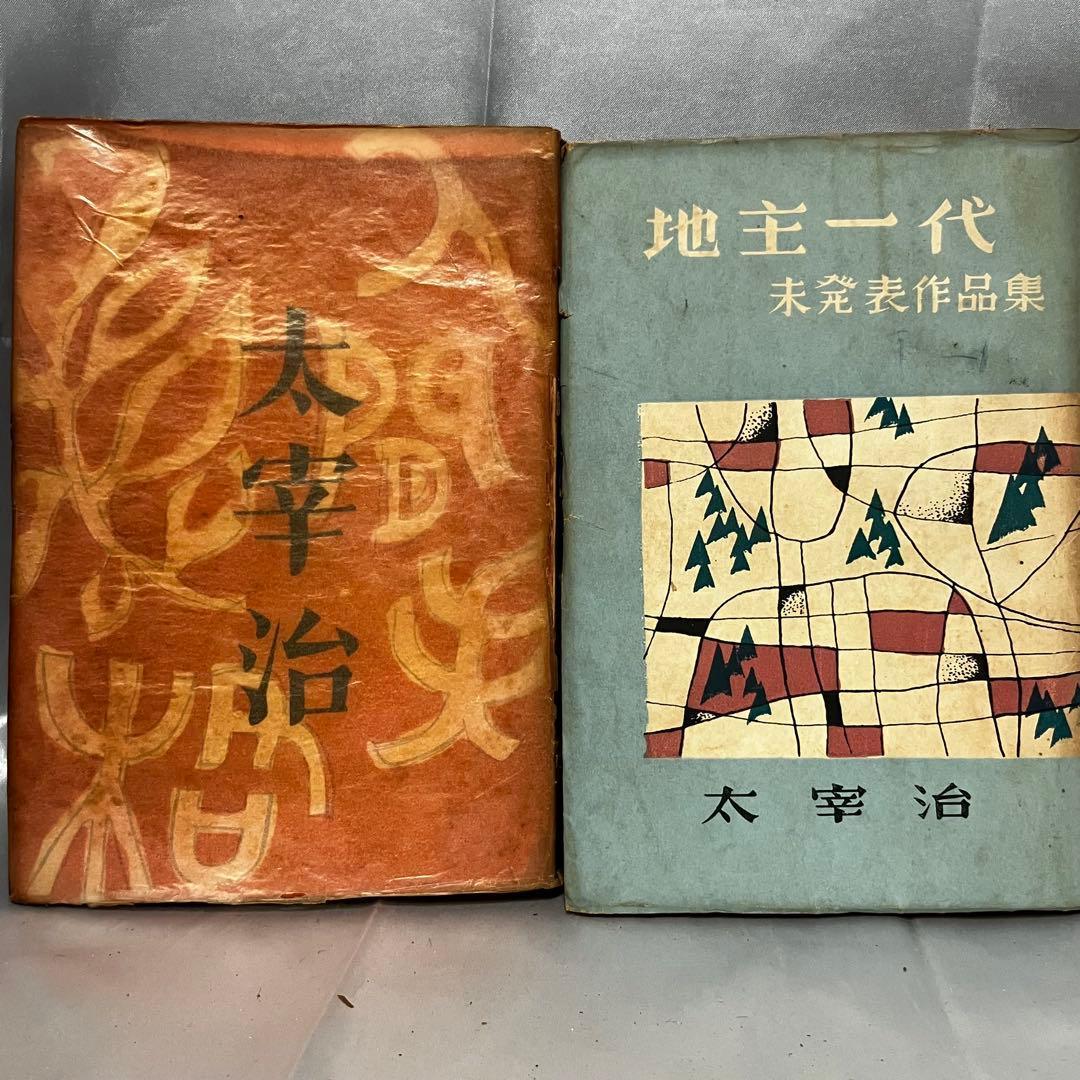 人間失格
太宰治
地主一代
未発表作品集
太宰治